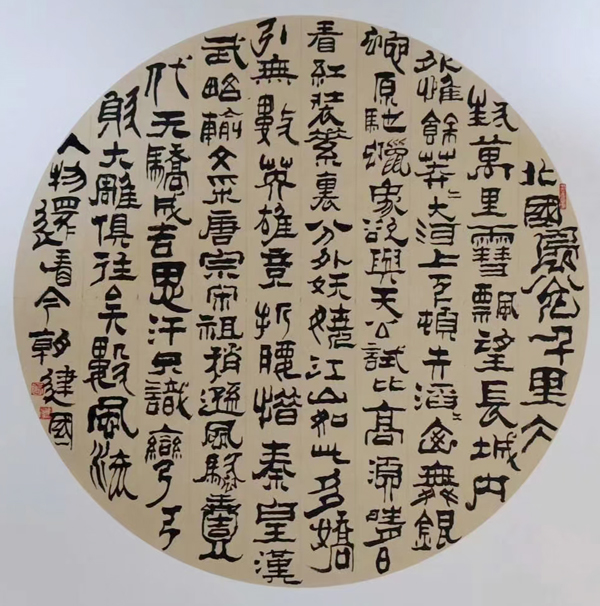 北國風光千里冰
封萬里雪飄望長城內
外惟餘莽〻大河上下頓失滔〻山舞銀
蛇原馳蠟象欲與天公試比高須晴日
看紅裝素裹分外妖嬈江山如此多嬌
引無數英雄竟折腰惜秦皇漢
武略輸文采唐宗宋祖稍遜風騷壹
代天驕成吉思汗只識彎弓
射大雕俱往矣數風流
人物還看今朝 建國